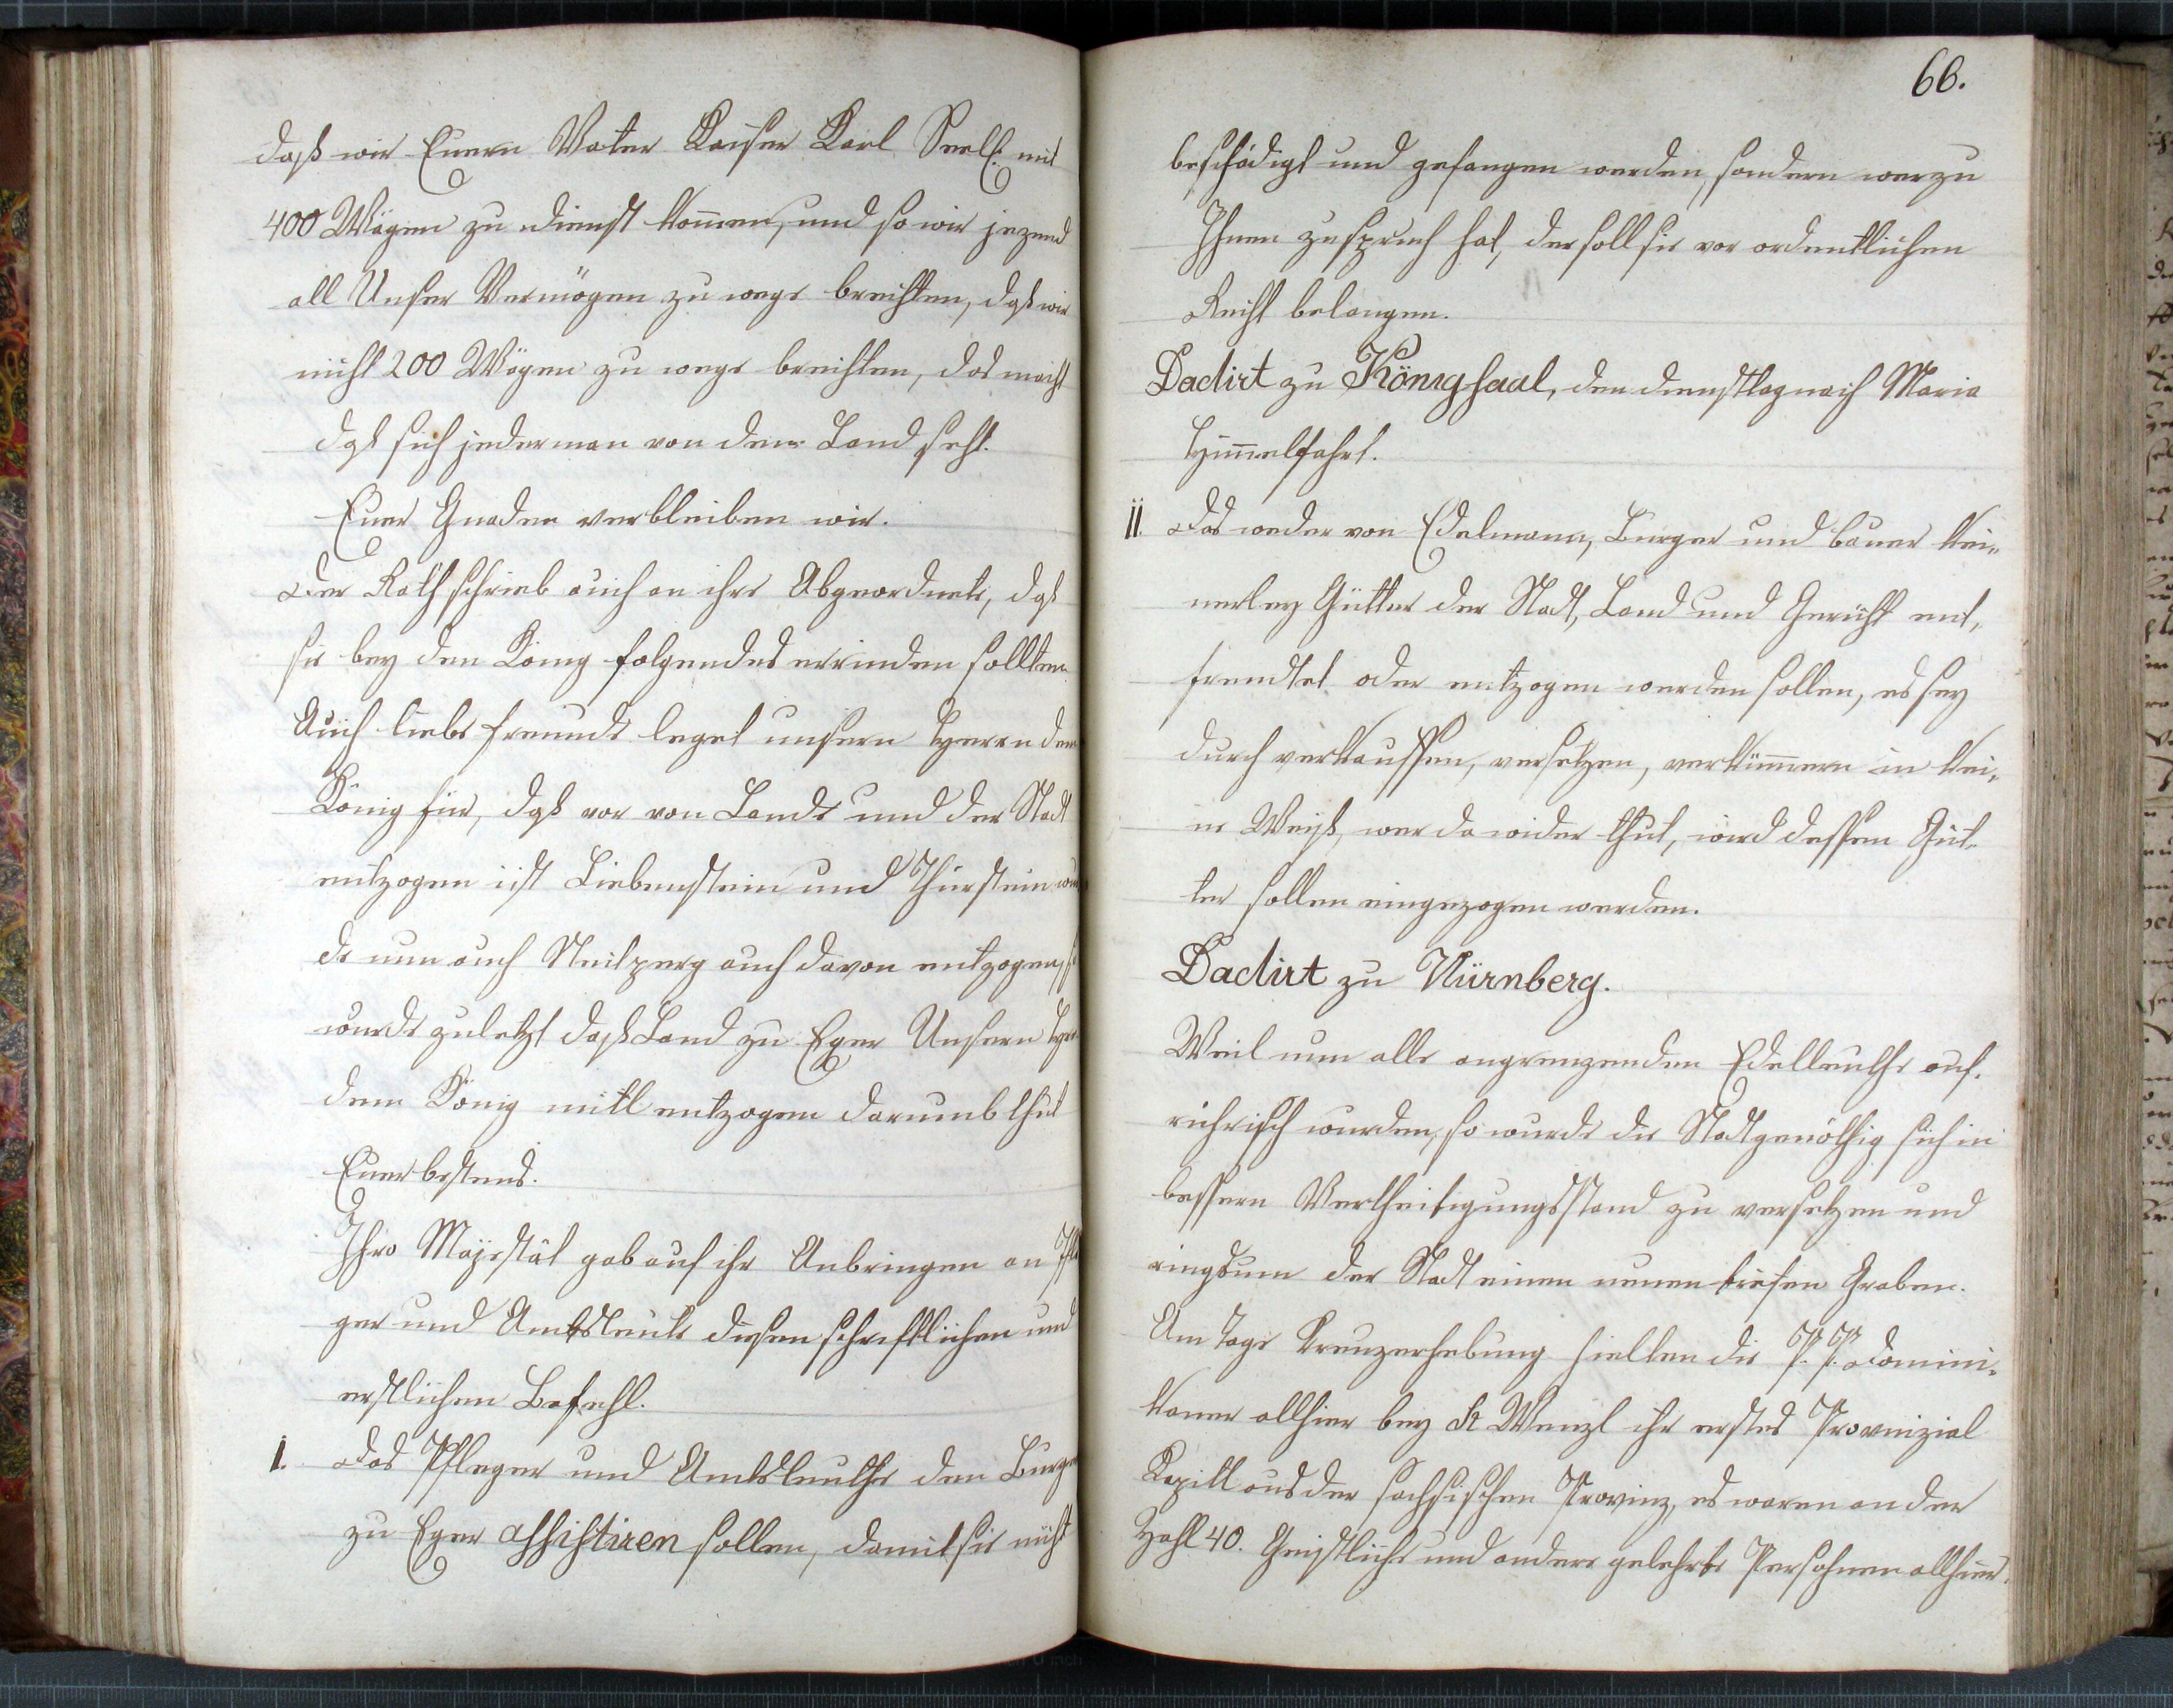 daß wir Euern Vater Kaiser Karl Seelg: mit
400 Wägen zu dienst kommen, und so wir jezund
all Unser Vermögen zu wege brechten, daß wir
nicht 200 Wägen zu wege brechten, das macht
daß sich jederman von dem Land seht.
Euer Gnaden verbleiben wir.
Der Rath schrieb auch an ihre Abgeordnete, daß
sie bey den König folgendes errinden sollten.
Auch liebe freunde leget unsern Herrn dem
König für, daß vor von Lande und der Stadt
entzogen ist Liebenstein und Thierstein wur
de nun auch Neitperg auch davon entzogen, so
wurde zuletzt daß Land zu Eger Unsern Herr
dem König mitl entzogen darumb thut
Euer bestens.
Ihro Majestät gab auf ihr Anbringen an Pfle
ger und Amtsleute diesen schriftlichen und
erstlichen Befehl.
I. Das Pfleger und Amtsleuthe den Burger
zu Eger assistiren sollen, damit sie nicht
66.
beschädigt und gefangen werden, sondern wer zu
Ihnen zuspruch hat, der soll sie vor ordentlichen
Recht belangen.
Dadirt zu Königsaal, den dienstag nach Maria
Himmelfahrt.
II. Das weder von Edelmann, Burger und bauer kei„
nerley Gütter der Stadt, Land und Gericht ent„
fremdtet oder entzogen werden sollen, es sey
durch verkauffen, versetzen, verkümmern in kei„
ne Weiß, wer dawider thut, wird dessen Güt„
ter sollen eingezogen werden.
Dadirt zu Nürnberg.
Weil nun alle angrenzenden Edelleuthe auf„
rührisch wurden, so wurde die Stadt genöthig sich in
bessern Vertheitigungsstand zu versetzen und
ringsum der Stadt einen neuen tiefen Graben.
Am Tage Kreuzerhebung hielten die P. P. Domini„
kaner allhier bey St Wenzl ihr erstes Provinzial
Kapitl aus der sachsischen Provinz, es waren an der
Zahl 40. Geistliche und andere gelehrte Persohnen allhier.